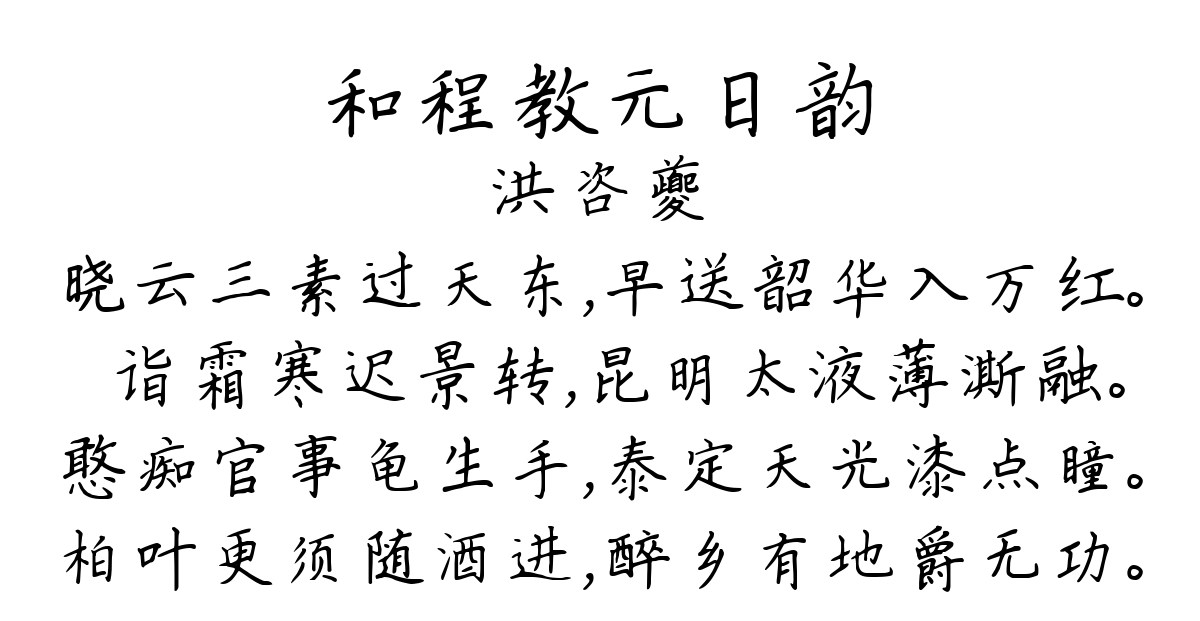 和程教元日韵
洪咨夔
晓云三素过天东,早送韶华入万红。
诣霜寒迟景转,昆明太液薄澌融。
憨痴官事龟生手,泰定天光漆点瞳。
柏叶更须随酒进,醉乡有地爵无功。